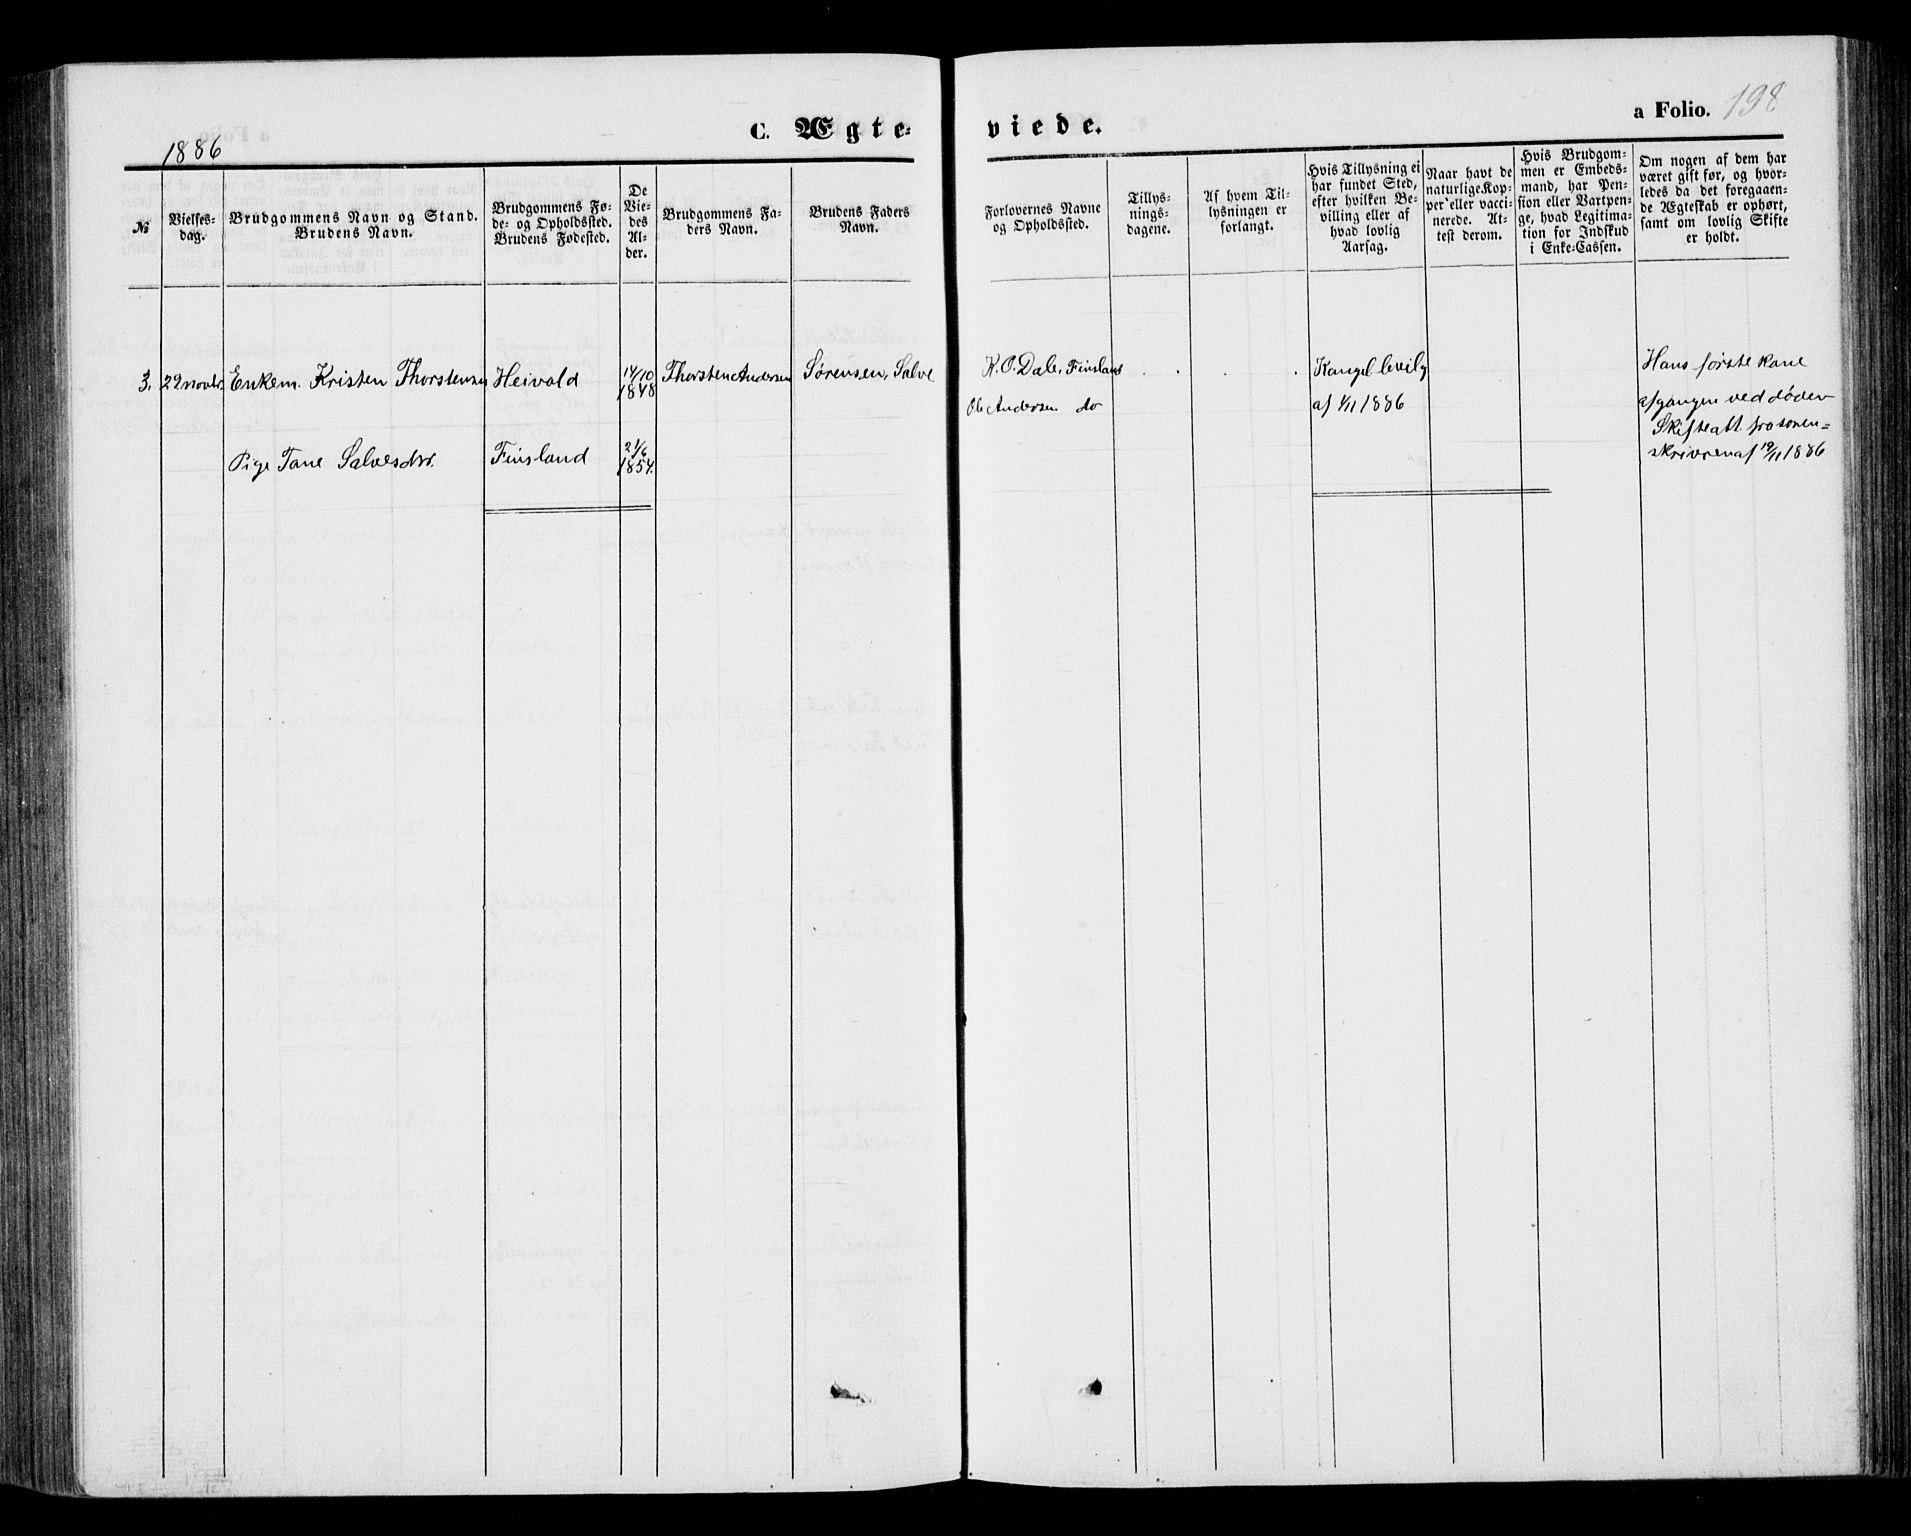 1886
C. Ægte=
viede.
a Folio. 198
№
Vielses-
dag.
Brudgommens Navn og Stand.
Brudens Navn.
Brudgommens Fø-
de- og Opholdssted.
Brudens Fødested.
De
Vie-
des
Al-
der.
Brudgommens Fa-
ders Navn.
Brudens Faders
Navn.
Forlovernes Navne
og Opholdssted.
Tillys-
nings-
dagene.
Af hvem Til-
lysningen er
forlangt.
Hvis Tillysning ei
har fundet Sted,
efter hvilken Be-
villing eller af
hvad lovlig
Aarsag.
Naar havt de
naturlige Kop-
per eller vacci-
nerede. At-
test derom.
Hvis Brudgom-
men er Embeds-
mand, har Pen-
sion eller Vartpen-
ge, hvad Legitima-
tion for Indskud
i Enke-Cassen.
Om nogen af dem har
været gift før, og hvor-
ledes da det foregaaen-
de Ægteskab er ophørt,
samt om lovlig Skifte
er holdt.
3. 22 novbr. Enkem. Kristen Thorstensen Heivold 14/10 1848 Thorsten Andersen Sørensen, Salve
Pige Tane Salvesdtr. Finsland 21/6 1854.
K. O. Dale, Finsland
Ole Andersen do
Kongel. bevilg
af 1/11 1886
Hans første kone
afgangen ved døden
Skifteatt. fra soren=
skriveren af 19/11 1886